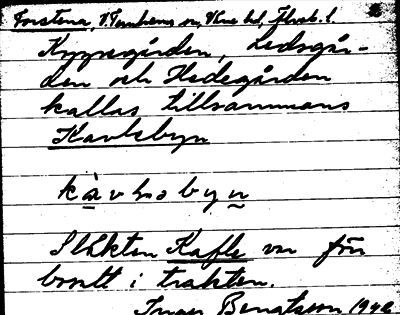 Forstena, V. Tunhems sn, Väne hd, Älvsb. l.
Kyrkogården, Ledsgår-
den och Hedegården
kallas tillsammans
Kavlebyn
byn
Släkten Kafle var för
bosatt i trakten.
Inger Bengtsson 1942